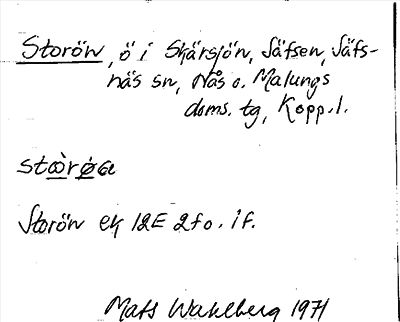 Storön, ö i Skärsjön, Säfsen, Säfs-
näs sn, Nås o. Malungs
doms. tg, Kopp. l.
Storön ek 12E 2f o. if.
Mats Wahlberg 1971